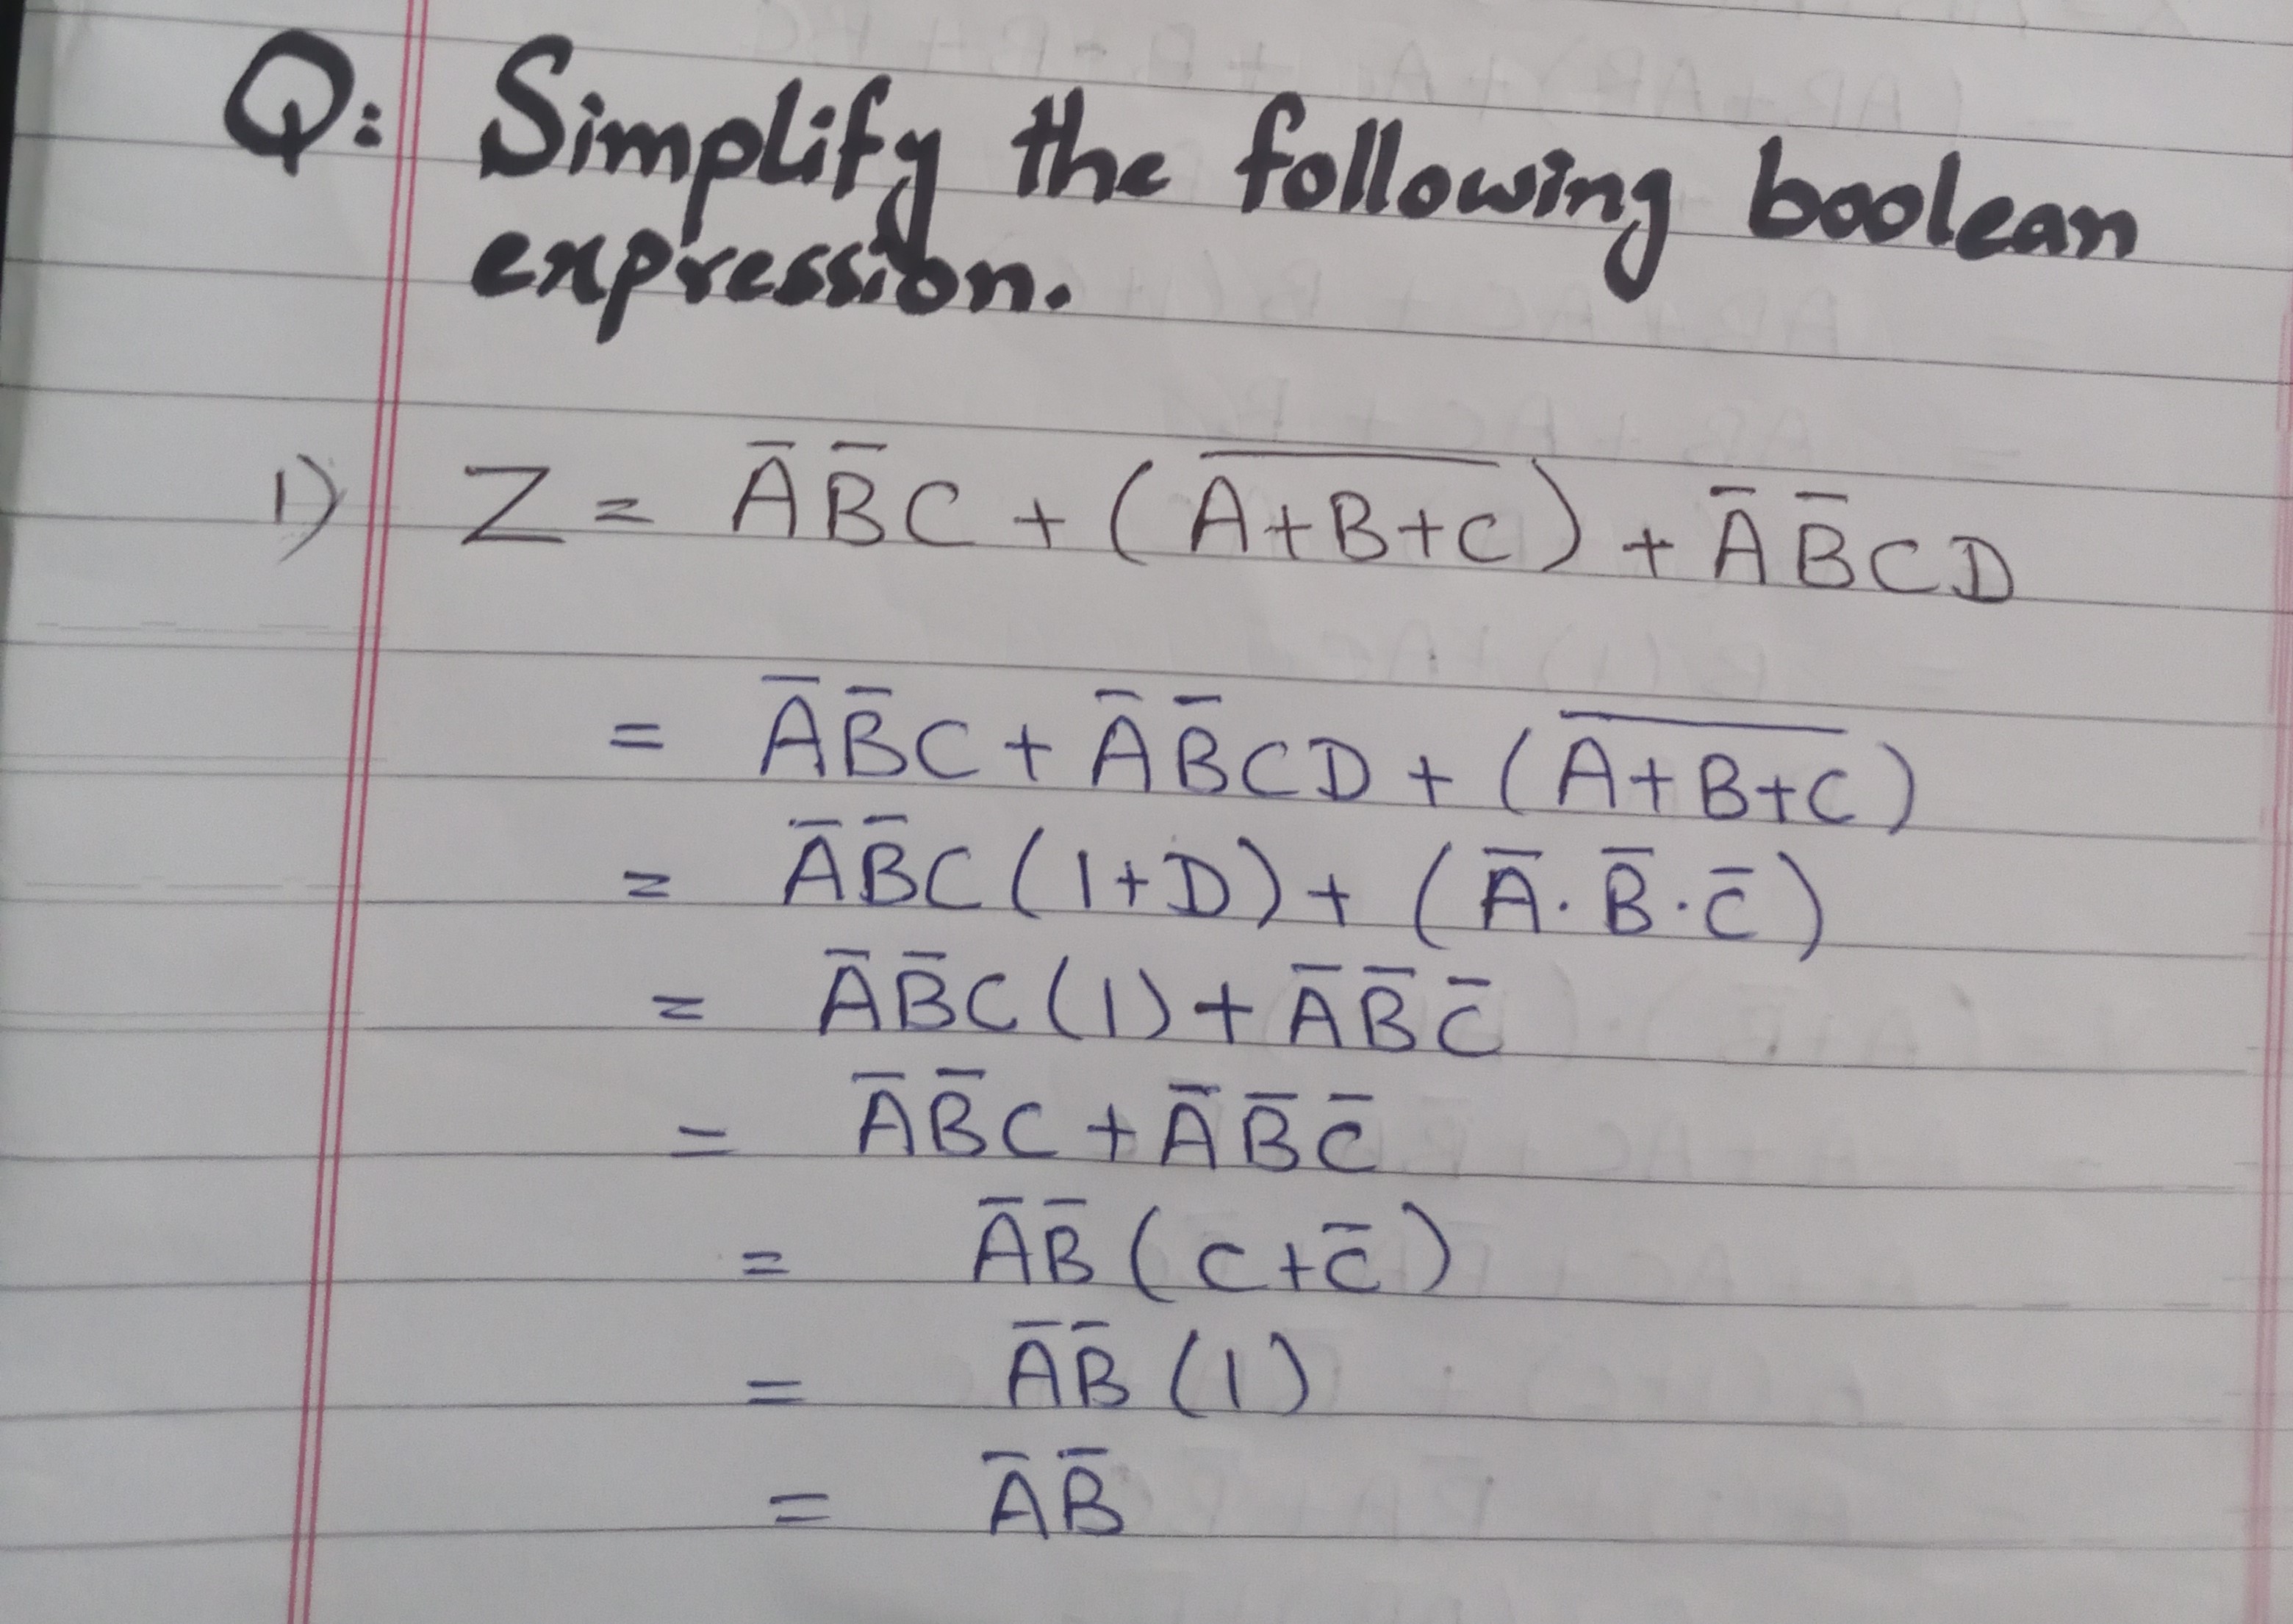 Q: Simplify the following boolean
expression.
1) Z = A̅ B̅ C + (A̅+̅B̅+̅C̅) + A̅ B̅ C D
= A̅ B̅ C + A̅ B̅ C D + (A̅+̅B̅+̅C̅)
= A̅ B̅ C (1+D) + (A̅ · B̅ · C̅)
= A̅ B̅ C (1) + A̅ B̅ C̅
= A̅ B̅ C + A̅ B̅ C̅
= A̅ B̅ (C + C̅)
= A̅ B̅ (1)
= A̅ B̅